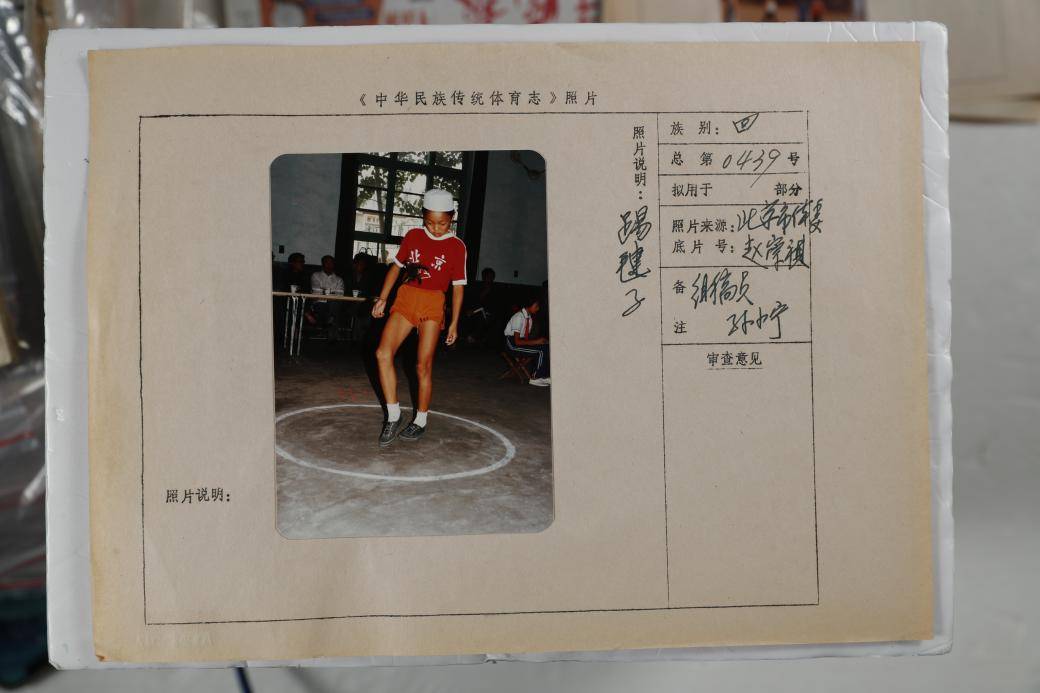 《中华民族传统体育志》照片
照片说明：
踢毽子
族 别：回
总 第 0439 号
拟用于 部分
照片来源：北京市体委
底片号：赵宗祺
备注 组稿员
孙小宁
审查意见
北京
照片说明：